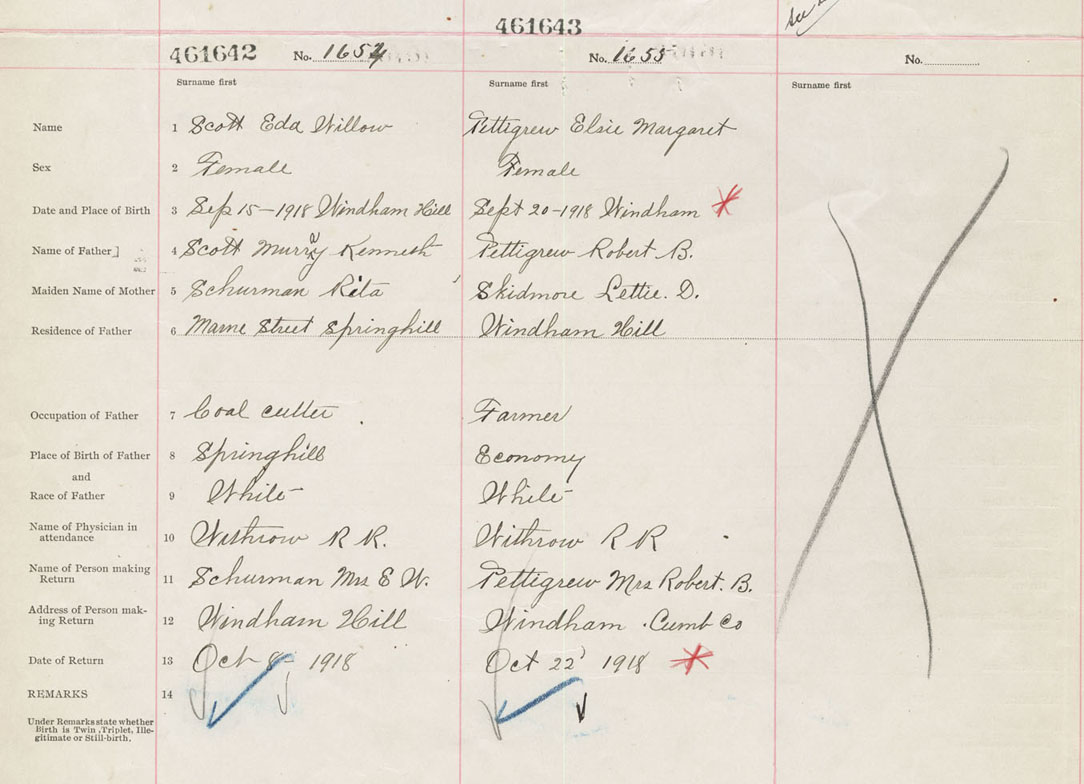 461643
461642 No. 1654 No. 1655 No.
Surname first Surname first Surname first
Name 1 Scott Eda Willow Pettigrew Elsie Margaret
Sex 2 Female Female
Date and Place of Birth 3 Sep 15-1918 Windham Hill Sept 20-1918 Windham
Name of Father 4 Scott Murry Kenneth Pettigrew Robert B.
Maiden Name of Mother 5 Schurman Rita Skidmore Lettie. D.
Residence of Father 6 Marne Street Springhill Windham Hill
Occupation of Father 7 Coal cutter Farmer
Place of Birth of Father 8 Springhill Economy
and
Race of Father 9 White White
Name of Physician in
attendance 10 Withrow R R. Withrow R R
Name of Person making
Return 11 Schurman Mrs E W. Pettigrew Mrs Robert. B.
Address of Person mak-
ing Return 12 Windham Hill Windham Cumb Co
Date of Return 13 Oct 8 1918 Oct 22 1918
REMARKS 14
Under Remarks state whether
Birth is Twin, Triplet, Ille-
gitimate or Still-birth.